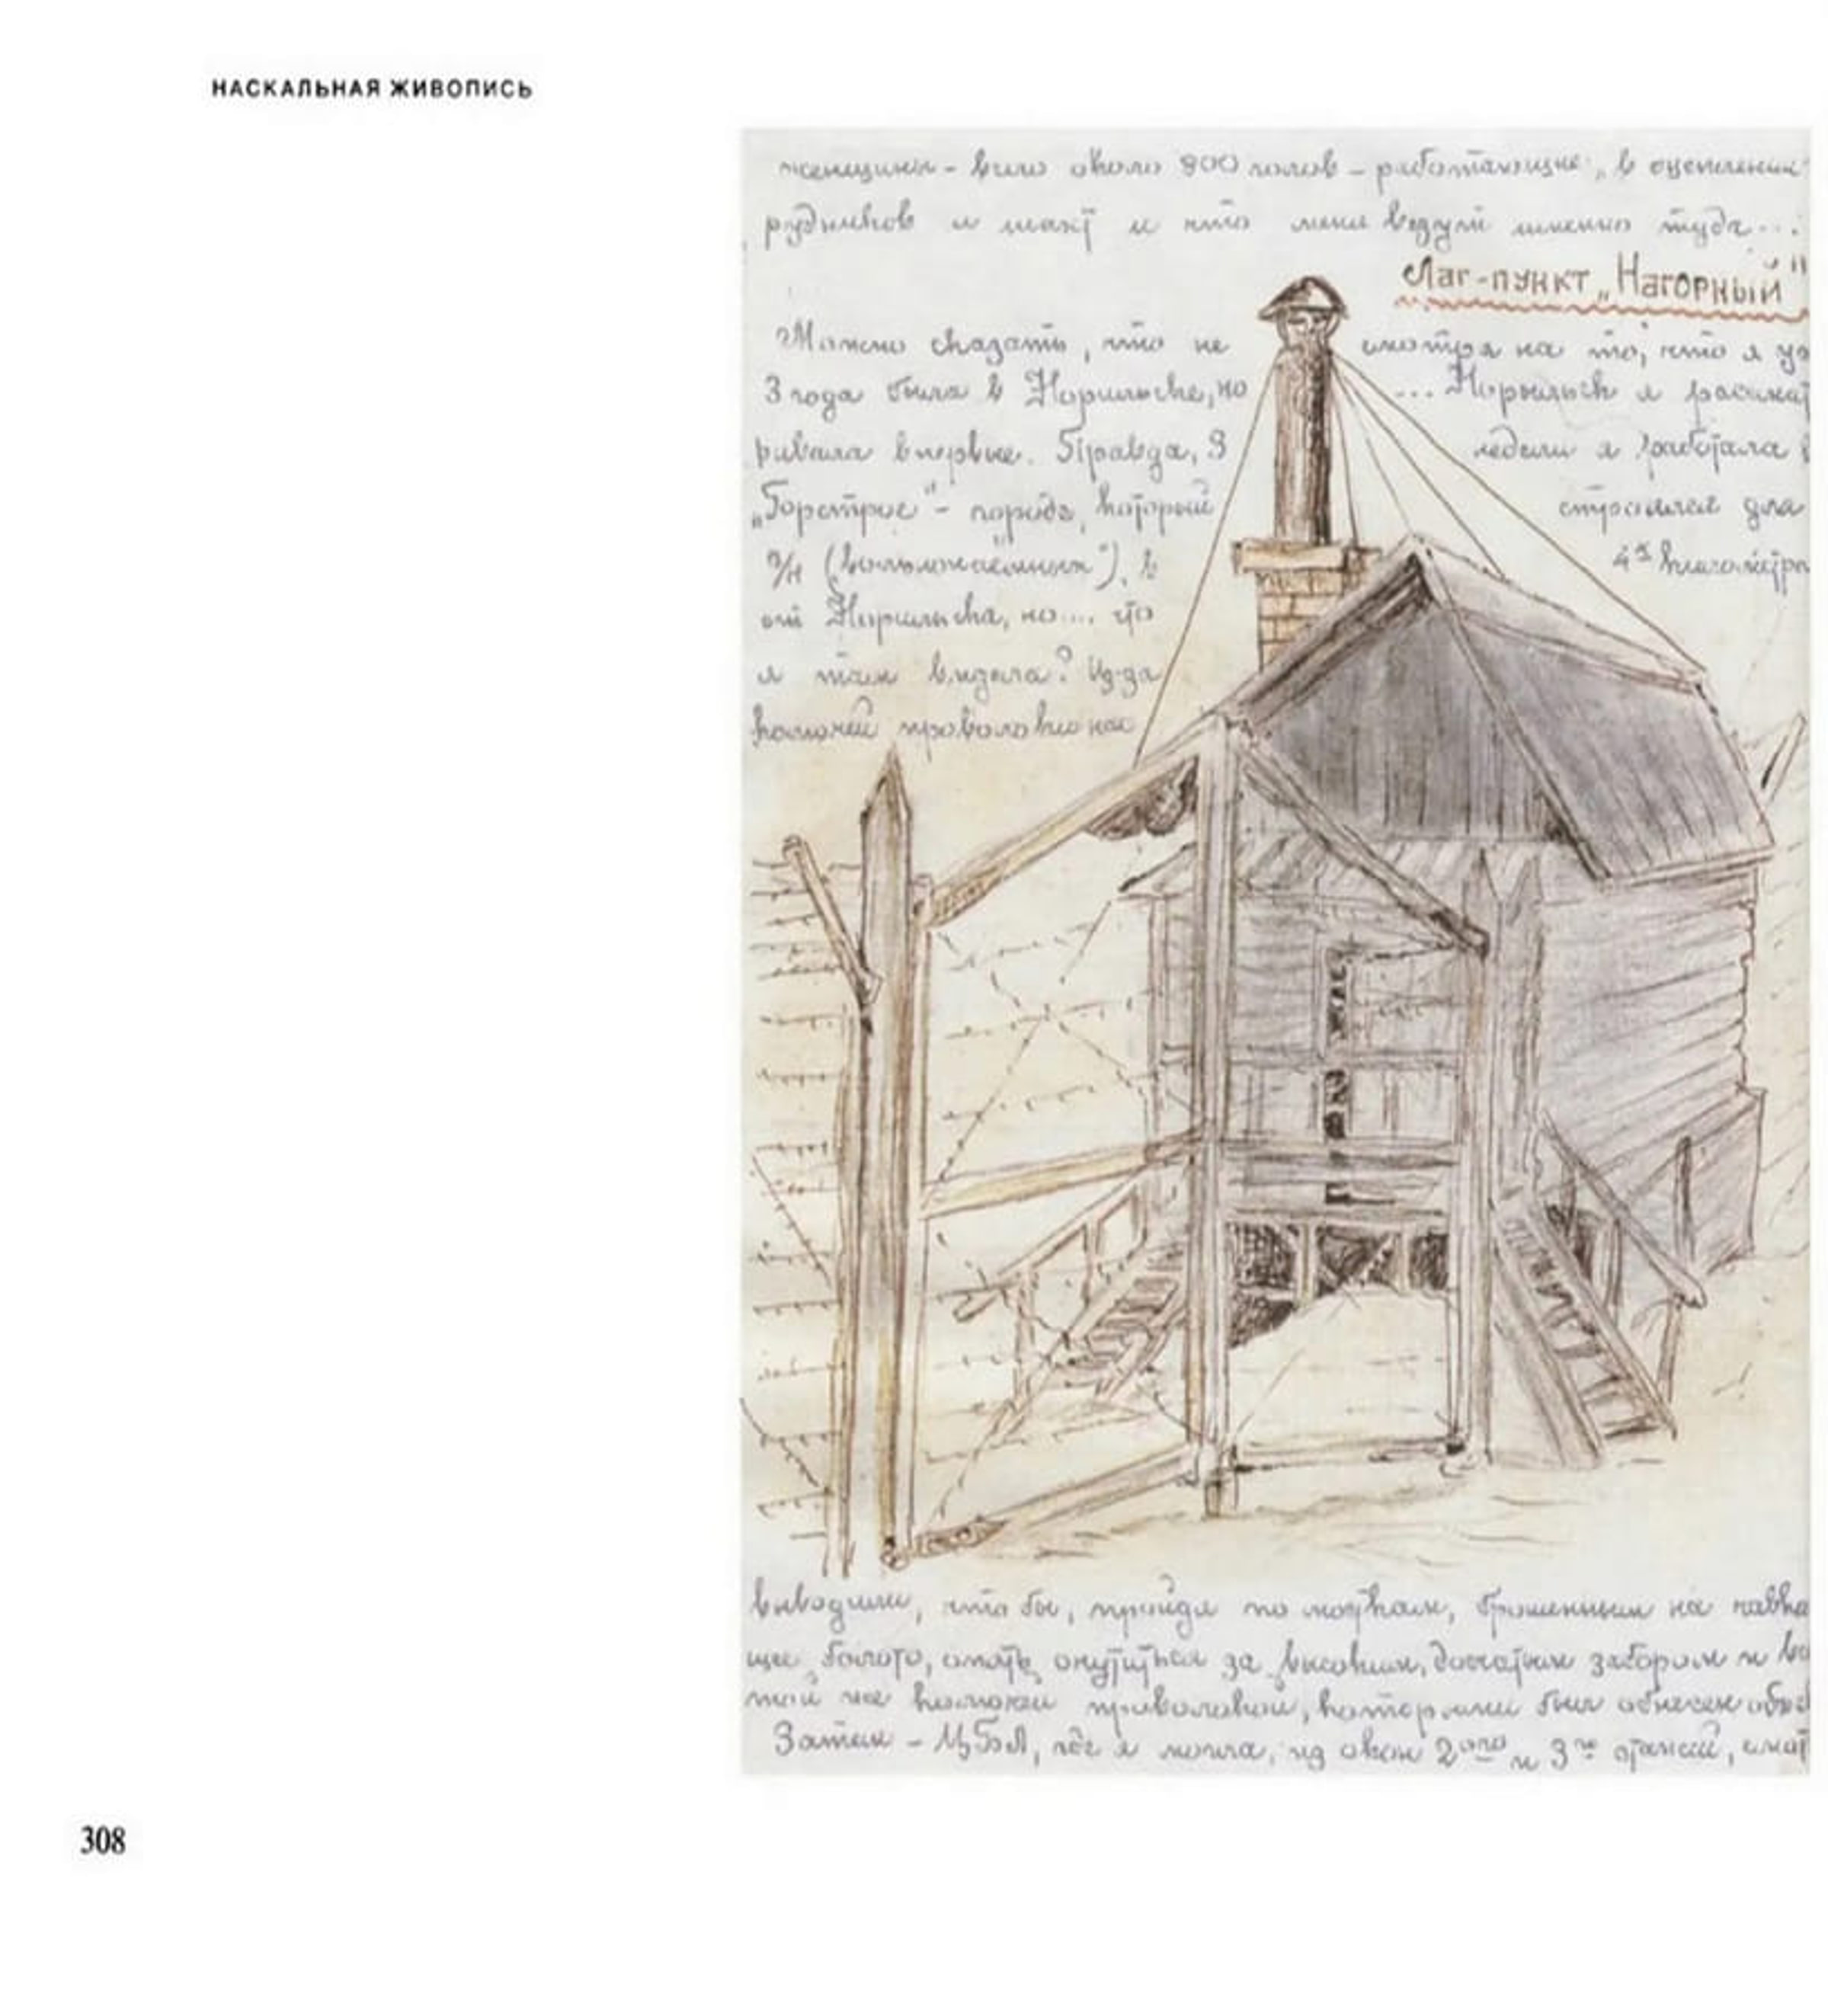 НАСКАЛЬНАЯ ЖИВОПИСЬ
женщины - всего около 900 голов - работающие „в оцеплении"
рудников и шахт и что меня ведут именно туда...
Лаг-пункт „Нагорный"
Можно сказать, что не смотря на то, что я уо
3 года была в Норильске, но ... Норильск я рассмат
ривала впервые. Правда, 3 недели я работала в
„Горстрое" - городе, который строился для
в/н („вольнонаёмных"), в 4х километрах
от Норильска, но... что
я там видела? Из-за
колючей проволоки нас
выводили, что бы, пройдя по мосткам, брошенным на чавка
щее болото, опять очутиться за высоким, дощатым забором и
той же колючей проволокой, которыми был обнесен объек
Затем - ЦБЛ, где я могла, из окон 2ого и 3го этажей, смот
308